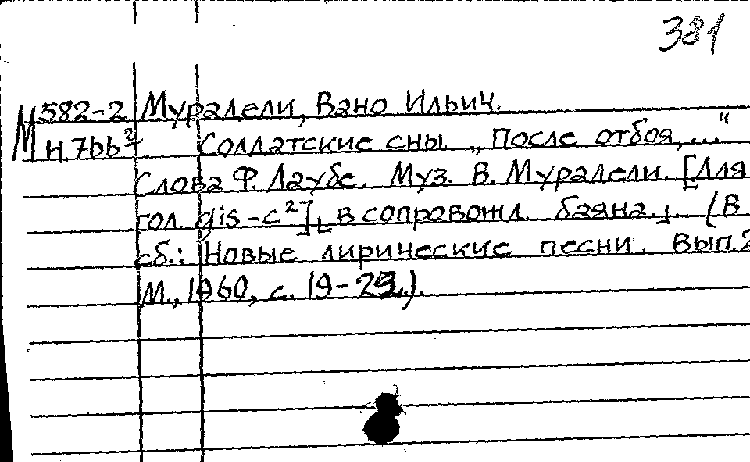 381
М582-2 Мурадели, Вано Ильич.
М Н766² Солдатские сны. „После отбоя,..."
Слова Ф. Лаубе. Муз. В. Мурадели. [Для
гол. gis-c²], [в сопровожд. баяна.]. (В
сб.: Новые лирические песни. Вып.2
М., 1960, с. 19-25.).